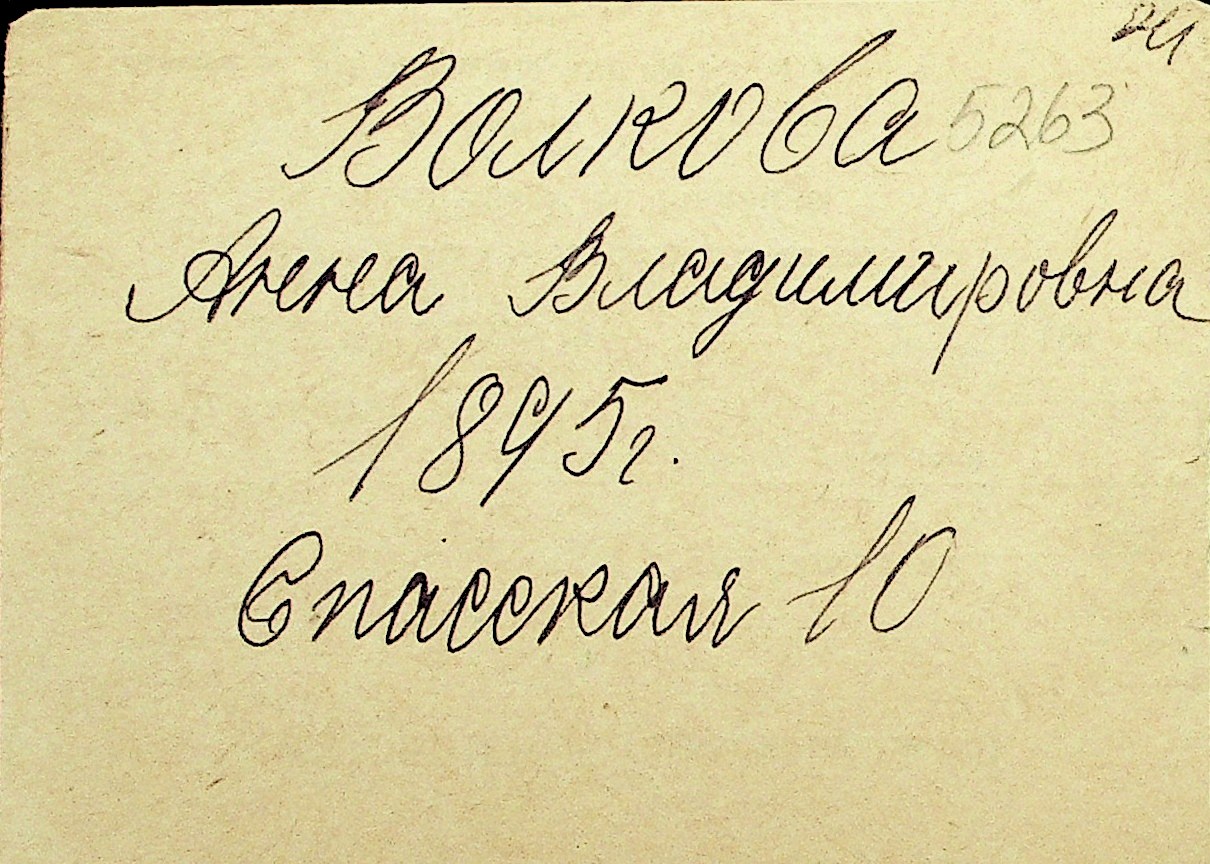 Волкова 5263
Анна Владимировна
1895г.
Спасская 10